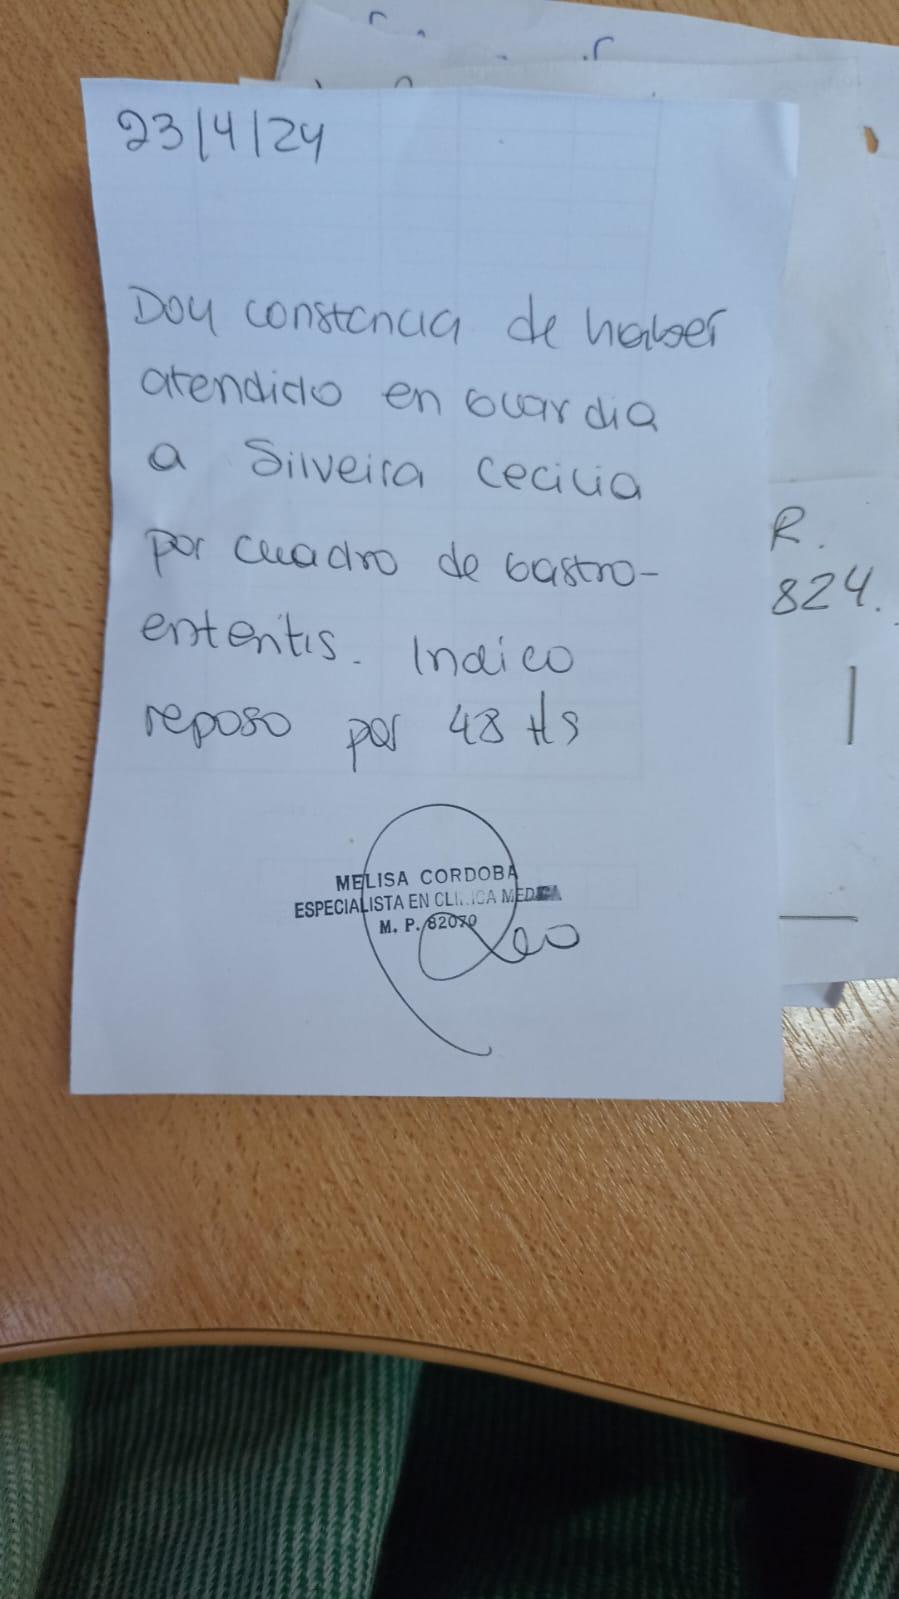 23/4/24
Doy constancia de haber
atendido en Guardia
a Silveira Cecilia
por cuadro de Gastro-
enteritis. Indico
reposo por 48 Hs
MELISA CORDOBA
ESPECIALISTA EN CLINICA MEDICA
M. P. 82070
R.
824.